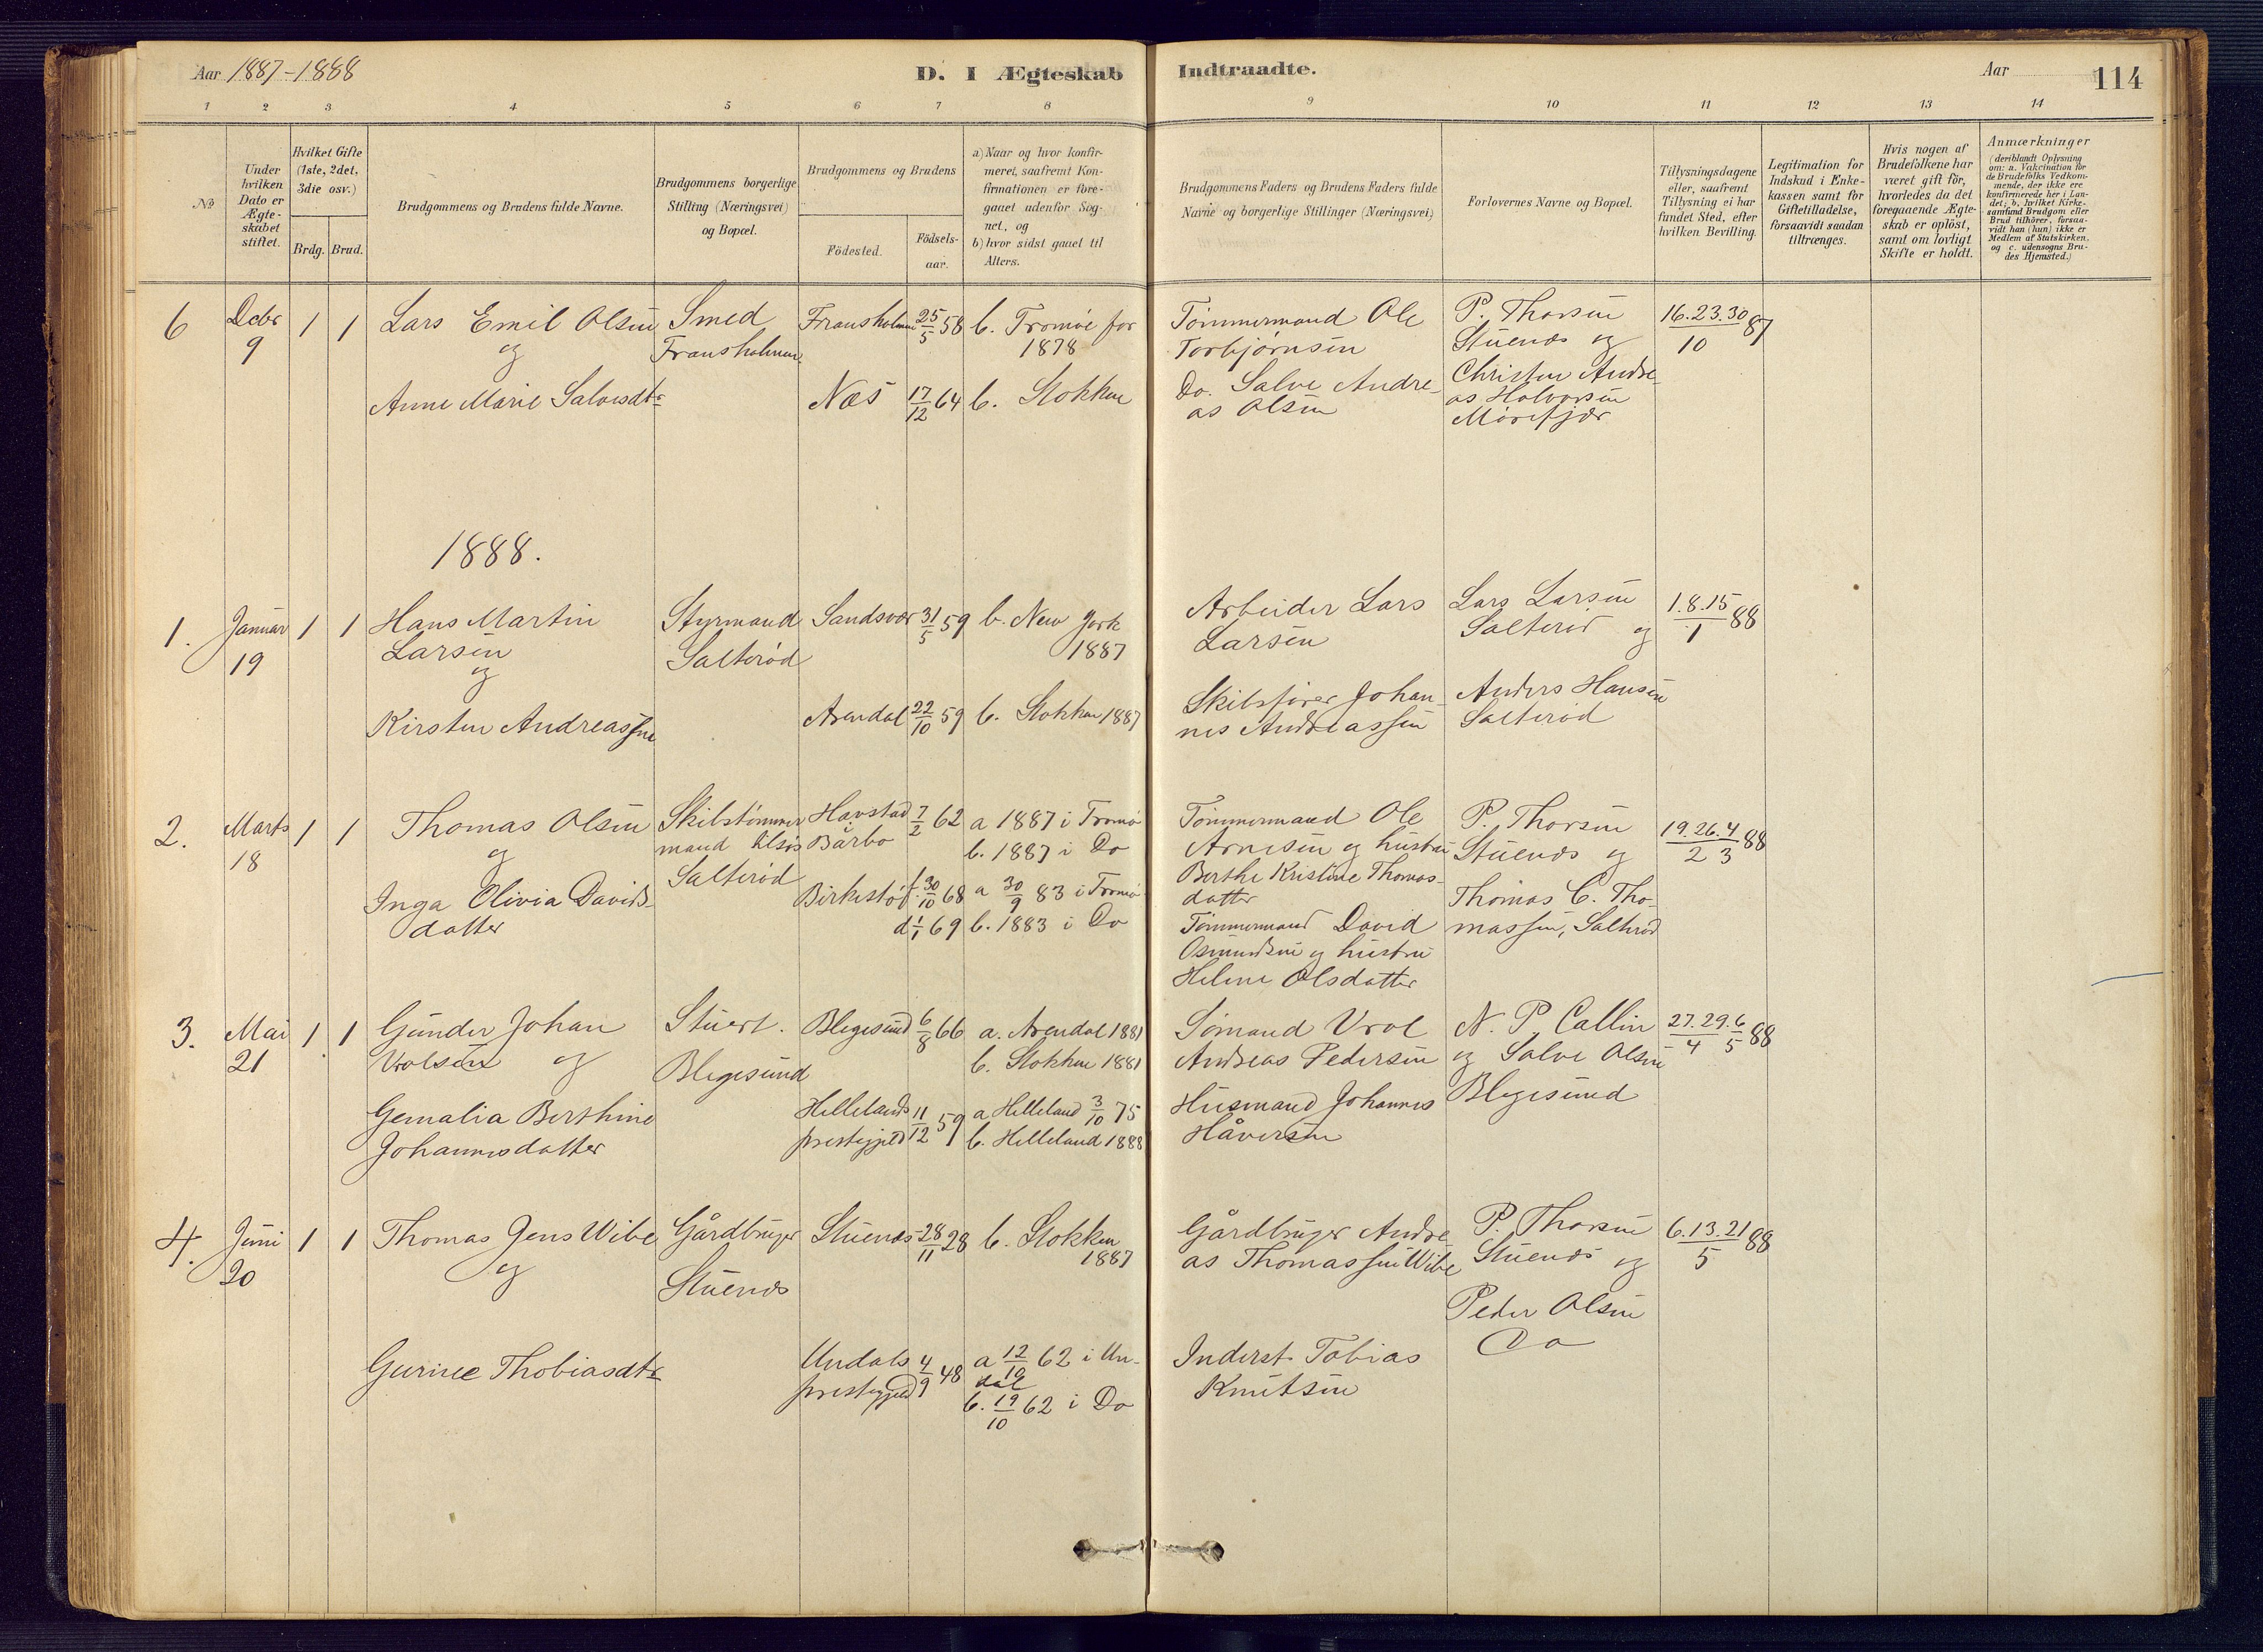 Aar 1887-1888
D. I Ægteskab
Indtraadte.
Aar
114
1 2 3 4 5 6 7 8 9 10 11 12 13 14
No
Under hvilken Dato er Ægteskabet stiftet.
Hvilket Gifte (1ste, 2det, 3die osv.)
Brdg. Brud.
Brudgommens og Brudens fulde Navne.
Brudgommens borgerlige Stilling (Næringsvei) og Bopæl.
Brudgommens og Brudens
Födested.
Födsels-aar.
a) Naar og hvor konfir-
meret, saafremt Kon-
firmationen er fore-
gaaet udenfor Sog-
net, og
b) hvor sidst gaaet til
Alters.
Brudgommens Faders og Brudens Faders fulde
Navne og borgerlige Stillinger (Næringsvei)
Forlovernes Navne og Bopæl.
Tillysningsdagene
eller, saafremt
Tillysning ei har
fundet Sted, efter
hvilken Bevilling.
Legitimation for
Indskud i Enke-
kassen samt for
Giftetilladelse,
forsaavidt saadan
tiltrænges.
Hvis nogen af
Brudefolkene har
været gift för,
hvorledes da det
foregaaende Ægte-
skab er oplöst,
samt om lovligt
Skifte er holdt.
Anmærkninger
(deriblandt Oplysning
om: a. Vakcination for
de Brudefolks Vedkom-
mende, der ikke ere
konfirmerede her i Lan-
det; b. hvilket Kirke-
samfund Brudgom eller
Brud tilhörer, forsaa-
vidt han (hun) ikke er
Medlem af Statskirken,
og c. udensogns Bru-
des Hjemsted.)
6 Debr 9 1 1 Lars Emil Olsen
og
Anne Marie Salvesdtr
Smed
Fransholmen
Fransholmen 25/5 58 b. Tromøe før
1878
Næs 17/12 64 b. Stokken
Tømmermand Ole
Torbjørnsen
Do. Salve Andre-
as Olsen
P. Thorsen
Stuenes og
Christen Andre-
as Halvorsen
Mørefjær
16.23.30/10 87
1888.
1. Januar 19 1 1 Hans Martin
Larsen
og
Kirsten Andreassne
Styrmand
Salterød
Sandsvær 31/5 59 b. New York
1887
Arendal 22/10 59 b. Stokken 1887
Arbeider Lars
Larsen
Skibsfører Johan-
nes Andreassen
Lars Larsen
Salterød og
Anders Hansen
Salterød
1.8.15/1 88
2. Marts 18 1 1 Thomas Olsen
og
Inga Olivia Davids-
datter
Skibstømmer
mand tilsøs
Salterød
Havstad
Barbo
7/2 62 a 1887 i Tromø
b. 1887 i Do
Birkestøl f. 30/10 68 a 30/9 83 i Tromø
d 1/1 69 b. 1883 i Do
Tømmermand Ole
Arnesen og hustru
Berthe Kristine Thomas-
datter
Tømmermand David
Osmundsen og hustru
Helene Olsdatter
P. Thorsen
Stuenes og
Thomas C. Tho-
massen, Salterød
19.26/2 4/3 88
3. Mai 21 1 1 Gunder Johan
Vrolsen og
Gemalia Berthine
Johannesdatter
Stuert.
Blegesund
Blegesund 6/8 66 a. Arendal 1881
b. Stokken 1881
Hellelands
prestegjeld 11/12 59 a Helleland 3/10 75
b. Helleland 1888
Sømand Vrol
Andreas Pedersen
Husmand Johannes
Håversen
N. P. Callin
og Salve Olsen
Blegesund
27.29/4 6/5 88
4. Juni 20 1 1 Thomas Jens Wibe
og
Gurine Thobiasdtr
Gårdbruger
Stuenes
Stuenes 28/11 28 b. Stokken
1887
Undals
prestegjeld 4/9 48 a 12/10 62 i Un-
dal
b. 19/10 62 i Do
Gårdbruger Andre-
as Thomassen Wibe
Inderst Tobias
Knutsen
P. Thorsen
Stuenes og
Peder Olsen
Do
6.13.21/5 88